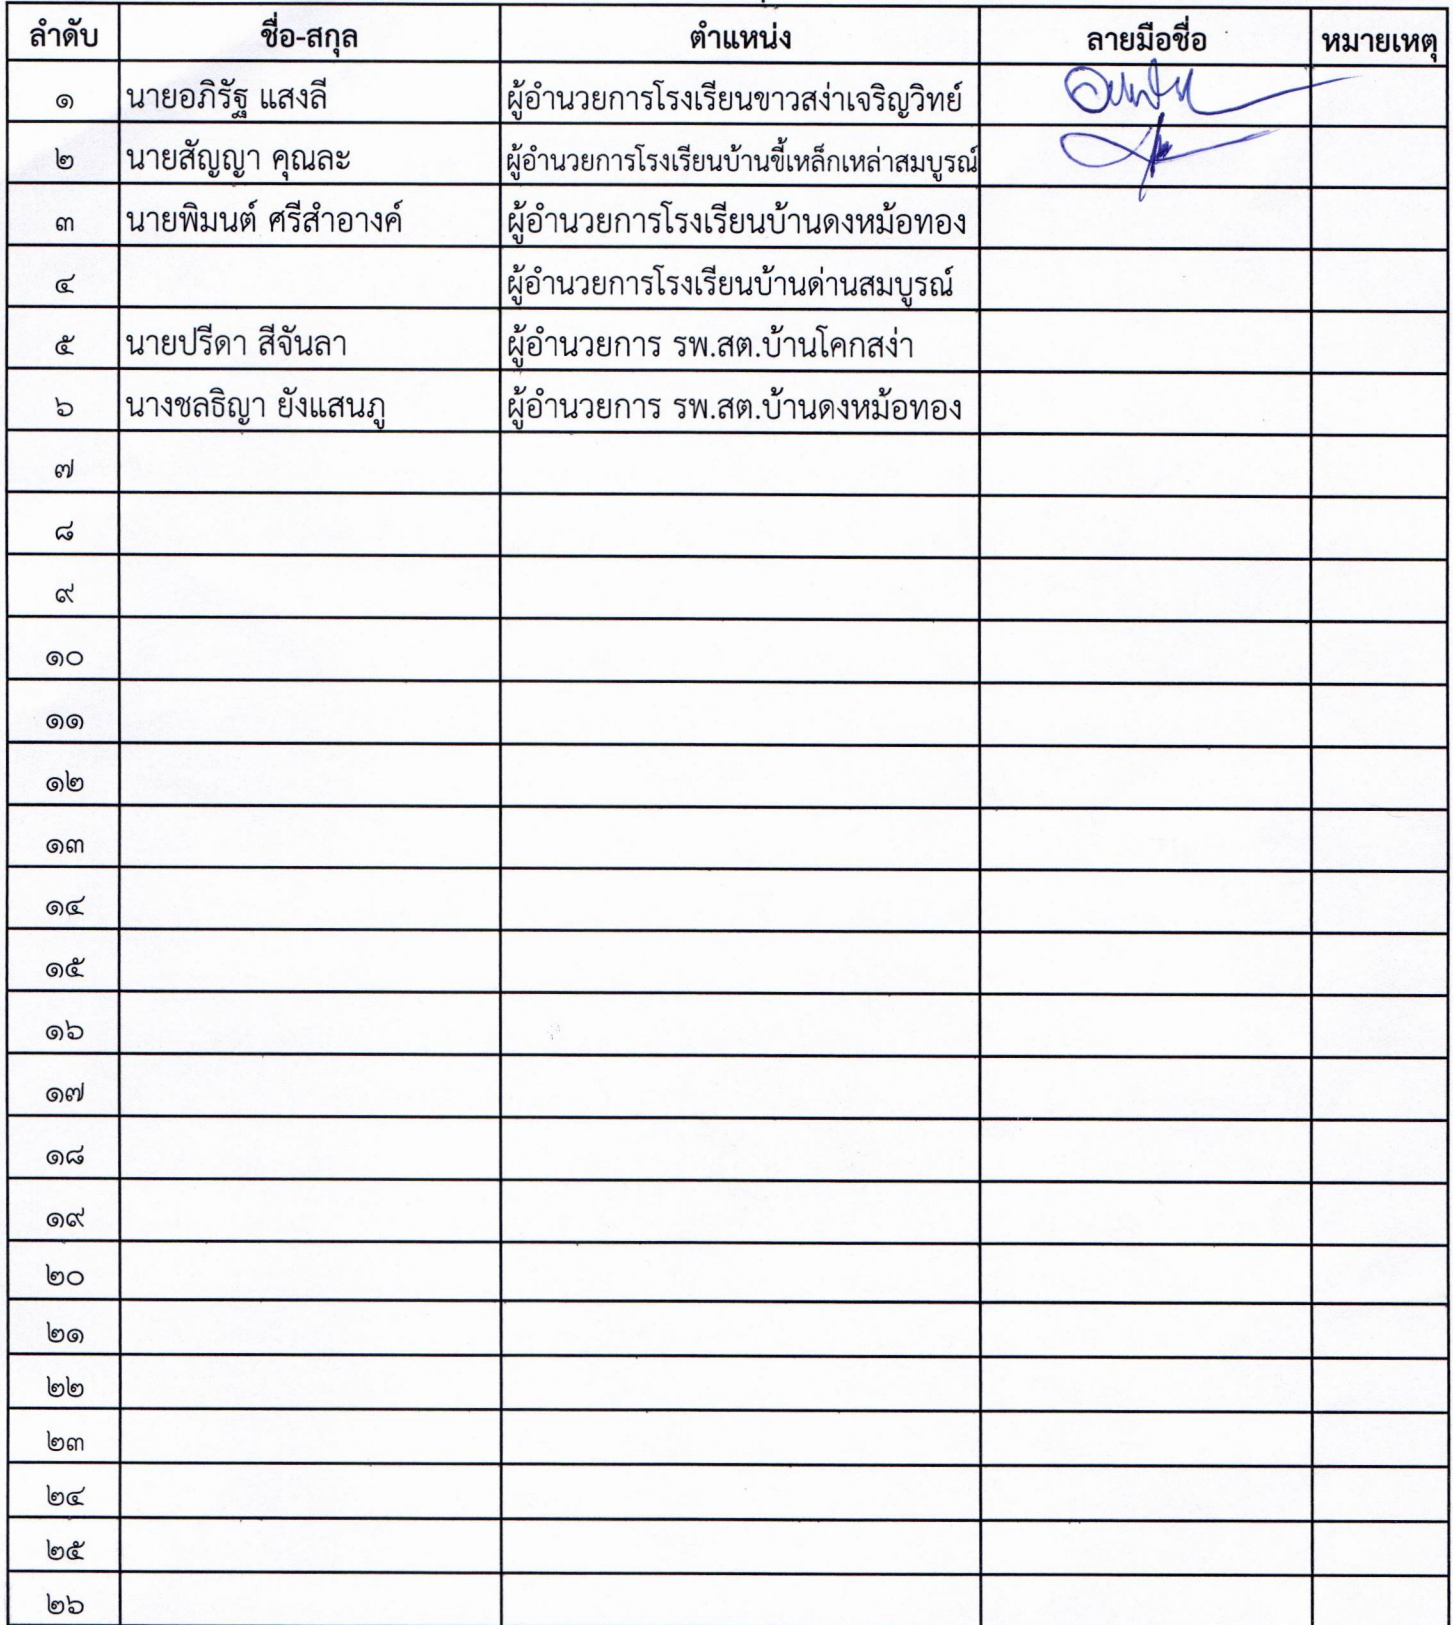 ลำดับ ชื่อ-สกุล ตำแหน่ง ลายมือชื่อ หมายเหตุ
๑ นายอภิรัฐ แสงลี ผู้อำนวยการโรงเรียนขาวสง่าเจริญวิทย์
๒ นายสัญญา คุณละ ผู้อำนวยการโรงเรียนบ้านขี้เหล็กเหล่าสมบูรณ์
๓ นายพิมนต์ ศรีสำอางค์ ผู้อำนวยการโรงเรียนบ้านดงหม้อทอง
๔ ผู้อำนวยการโรงเรียนบ้านด่านสมบูรณ์
๕ นายปรีดา สีจันลา ผู้อำนวยการ รพ.สต.บ้านโคกสง่า
๖ นางชลธิญา ยังแสนภู ผู้อำนวยการ รพ.สต.บ้านดงหม้อทอง
๗
๘
๙
๑๐
๑๑
๑๒
๑๓
๑๔
๑๕
๑๖
๑๗
๑๘
๑๙
๒๐
๒๑
๒๒
๒๓
๒๔
๒๕
๒๖